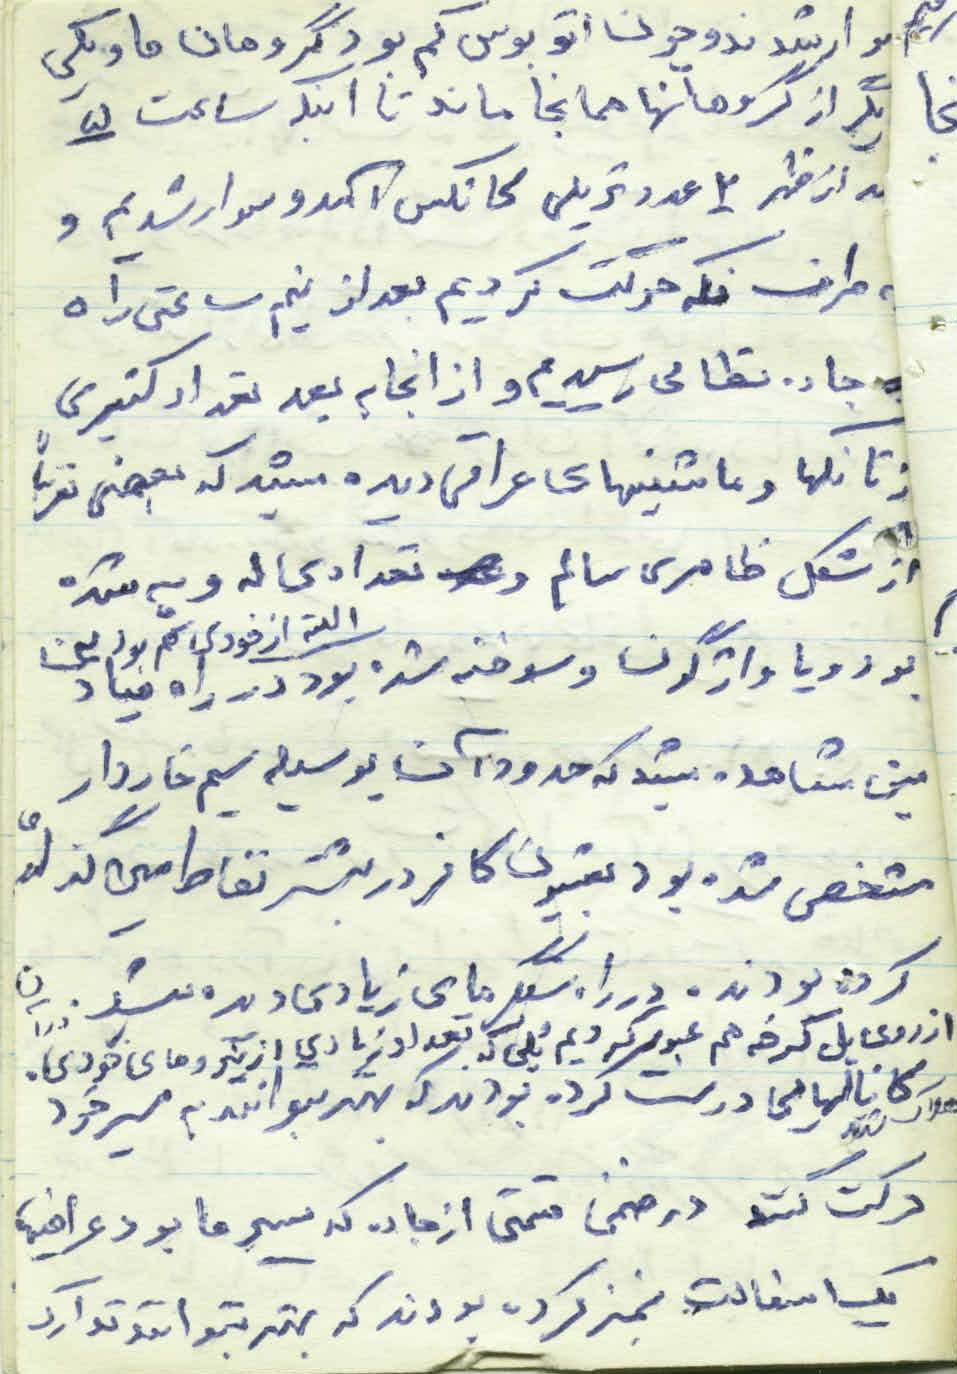 سوار شدند و چون اتوبوس کم بود گروهان ما و یکی
دیگر از گروهانها همانجا ماند تا اینکه ساعت
بعد از ظهر ۲ عدد تریلی تانکبر آمد و سوار شدیم و
به طرف فکه حرکت کردیم بعد از نیم ساعتی راه
به جاده نظامی رسیدیم و از انجا به بعد تعداد کثیری
از تانکها و ماشینهای عراقی دیده میشد که بعضی تقریباً
از شکل ظاهری سالم و تعدادی له و په شده
البته از خودی هم بود
بود و یا واژگون و سوخته شده بود در راه میاد
مین مشاهده میشد که حدود آن بوسیله سیم خاردار
مشخص شده بود بعثیون کافر در بیشتر نقاط مین گذاری
کرده بودند. در راه سنگرهای زیادی دیده میشد.
از روی پل کرخه هم عبور کردیم پلی که تعداد زیادی از نیروهای خودی
هلاک شدند
کانالهایی درست کرده بودند که بهتر بتوانند به مسیر خود
حرکت کنند در ضمن قسمتی از جاده که مسیر ما بود عراقیها
یک اسفالت تمیز کرده بودند که بهتر بتوانند تدارک